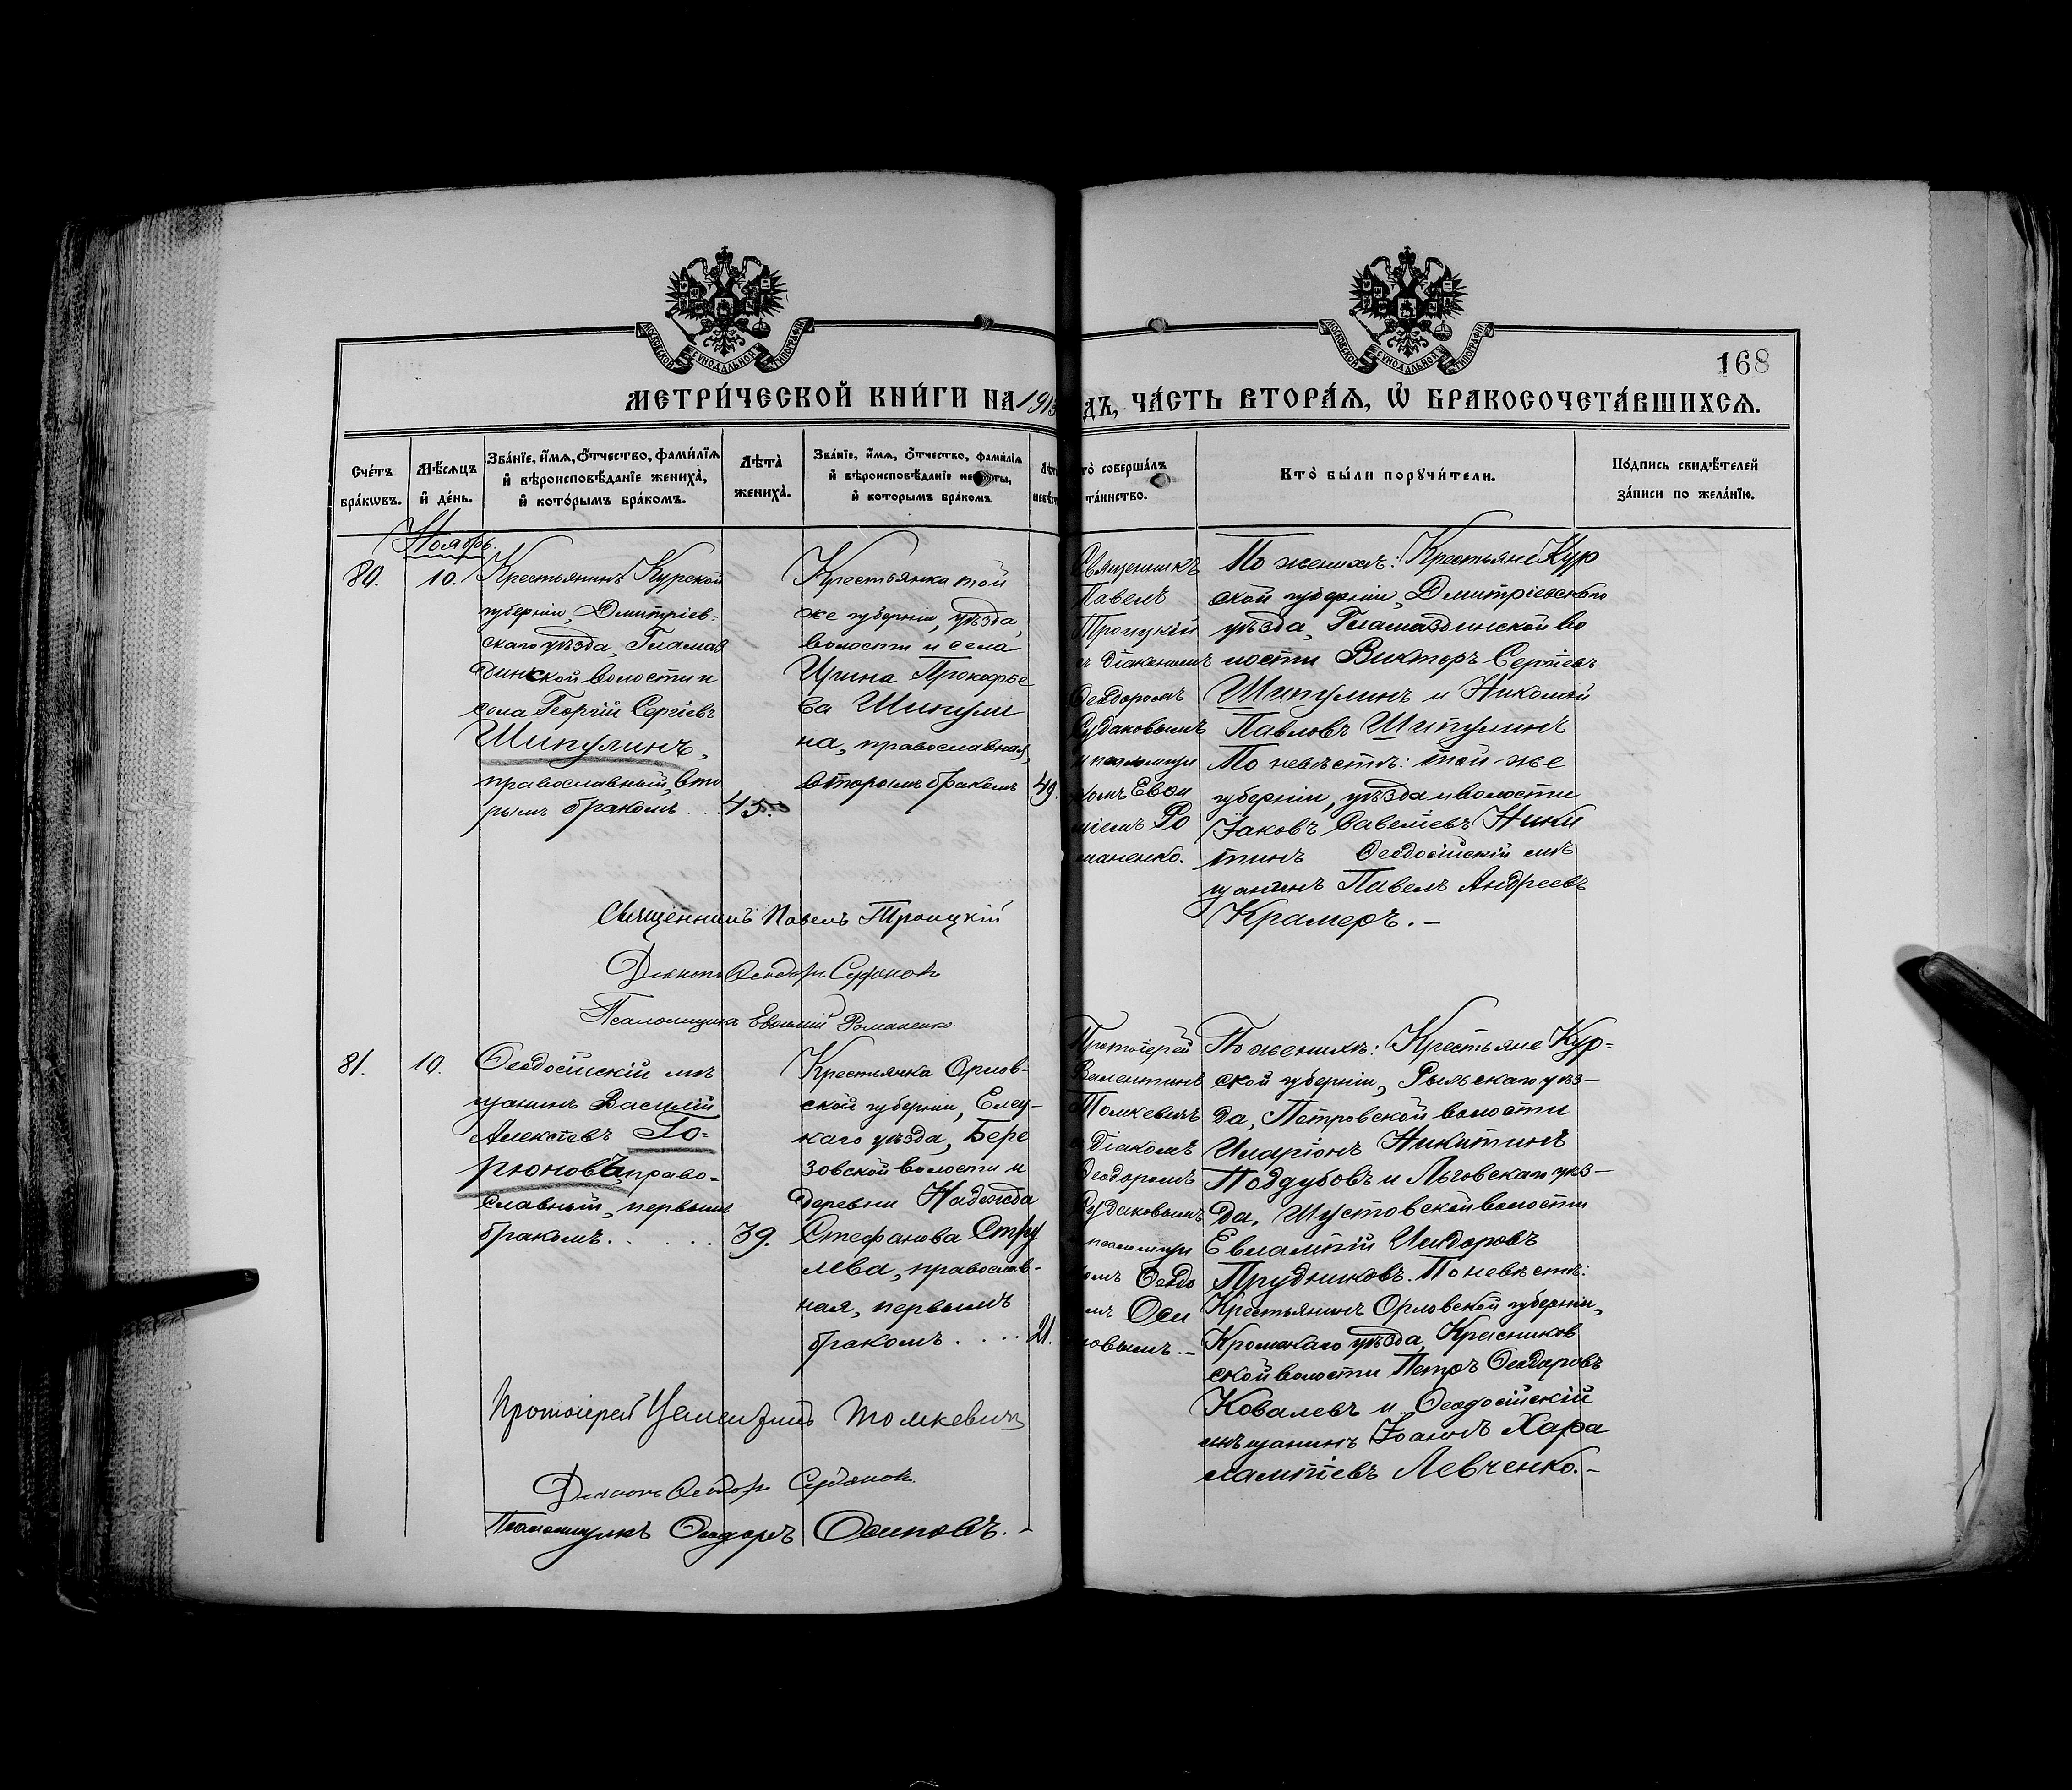 МОСКОВСКОЙ СѴНОДАЛЬНОЙ ТИПОГРАФІИ
МОСКОВСКОЙ СѴНОДАЛЬНОЙ ТИПОГРАФІИ
168
МЕТРИ́ЧЕСКОЙ КНИ́ГИ НА 1913
ДЪ, ЧА́СТЬ ВТОРА́Ѧ, Ѡ҆ БРАКОСОЧЕТА́ВШИХСѦ.
Сче́тъ бра́кѡвъ.
Мѣ́сѧцъ и҆ де́нь.
Зва́нїе, и҆́мѧ, ѻ҆́тчество, фами́лїѧ и҆ вѣроисповѣ́данїе жениха̀, и҆ кото́рымъ бра́комъ.
Лѣта̀ жениха̀.
Зва́нїе, и҆́мѧ, ѻ҆́тчество, фами́лїѧ и҆ вѣроисповѣ́данїе не
ты, и҆ которымъ бракомъ
то̀ соверша́лъ та́инство.
Кто̀ бы́ли порꙋчи́тели.
По́дпись свидѣ́телей за́писи по жела́нїю.
Ноябрь.
80.
10.
Крестьянинъ Курской
губерніи, Дмитріев-
скаго уѣзда, Гламаз
динской волости и
села Георгій Сергіевъ
Шипулинъ,
православный, вто
рымъ бракомъ . . .
45.
Крестьянка той
же губерніи, уѣзда,
волости и села
Ирина Прокофье
ва Шипули
на, православная,
вторымъ бракомъ
49.
Священникъ
Павелъ
Троицкій
съ діакономъ
Ѳеодоромъ
Рудаковымъ
и псаломщи
комъ Евѳи
міемъ Ро
маненко.
По женихѣ: Крестьяне Кур
ской губерніи, Дмитріевскаго
уѣзда, Гламаздинской во
лости Викторъ Сергіевъ
Шипулинъ и Николай
Павловъ Шипулинъ
По невѣстѣ: той-же
губерніи, уѣзда и волости
Іаковъ Савеліевъ Ники
тинъ Ѳеодосійскій мѣ
щанинъ Павелъ Андреевъ
Крамеръ. —
Священникъ Павелъ Троицкій
Діаконъ Ѳеодоръ
Псаломщикъ Евѳимій Романенко
81.
10.
Ѳеодосійскій мѣ
щанинъ Василій
Алексѣевъ Го=
рюновъ, право=
славный, первымъ
бракомъ. . . . . .
39.
Крестьянка Орлов-
ской губерніи, Елец-
каго уѣзда, Бере
зовской волости и
деревни Надежда
Стефанова Стру
лева, православ-
ная, первымъ
бракомъ . . . .
21.
Протоіерей
Валентинъ
Томкевичъ
съ діакономъ
Ѳеодоромъ
Рудаковымъ
псаломщи
омъ Ѳеодо
мъ Оси
новымъ. —
По женихѣ: Крестьяне Кур=
ской губерніи, Рыльскаго уѣз—
да, Петровской волости
Иларіонъ Никитинъ
Поддубовъ и Льговскаго уѣз—
да, Шустовской волости
Евлампій Исидоровъ
Прудниковъ. По невѣстѣ:
Крестьянинъ Орловской губерніи,
Кромскаго уѣзда, Красников
ской волости Петръ Ѳеодоровъ
Ковалевъ и Ѳеодосійскій
мѣщанинъ Іоаннъ Хара
лампіевъ Левченко. —
Протоіерей Валентинъ Томкевичъ
Діаконъ Ѳеодоръ
Псаломщикъ Ѳеодоръ Осиповъ. —